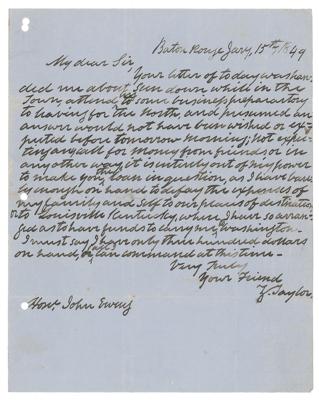 Baton Rouge Jany, 15th, 1849
My dear Sir
Your letter of today was han-
ded me about sun down while in the
Town, attend to some business preparatory
to leaving for the North, and presumed an
answer would not have been wished or ex-
pected before tomorrow morning; not expe-
any other it is entirely out of my power
to make you the loan in question, as I have bare
ly enough on hand to defray the expenses of
my family and self to our places of destination
or to Louisville Kentucky, where I have so arran-
ged as to have funds to carry me Washington.
I must say I have only three hundred dollars
on hand, or can command at this time—
Very Truly
Your Friend
Z. Taylor
Honl. John Ewing